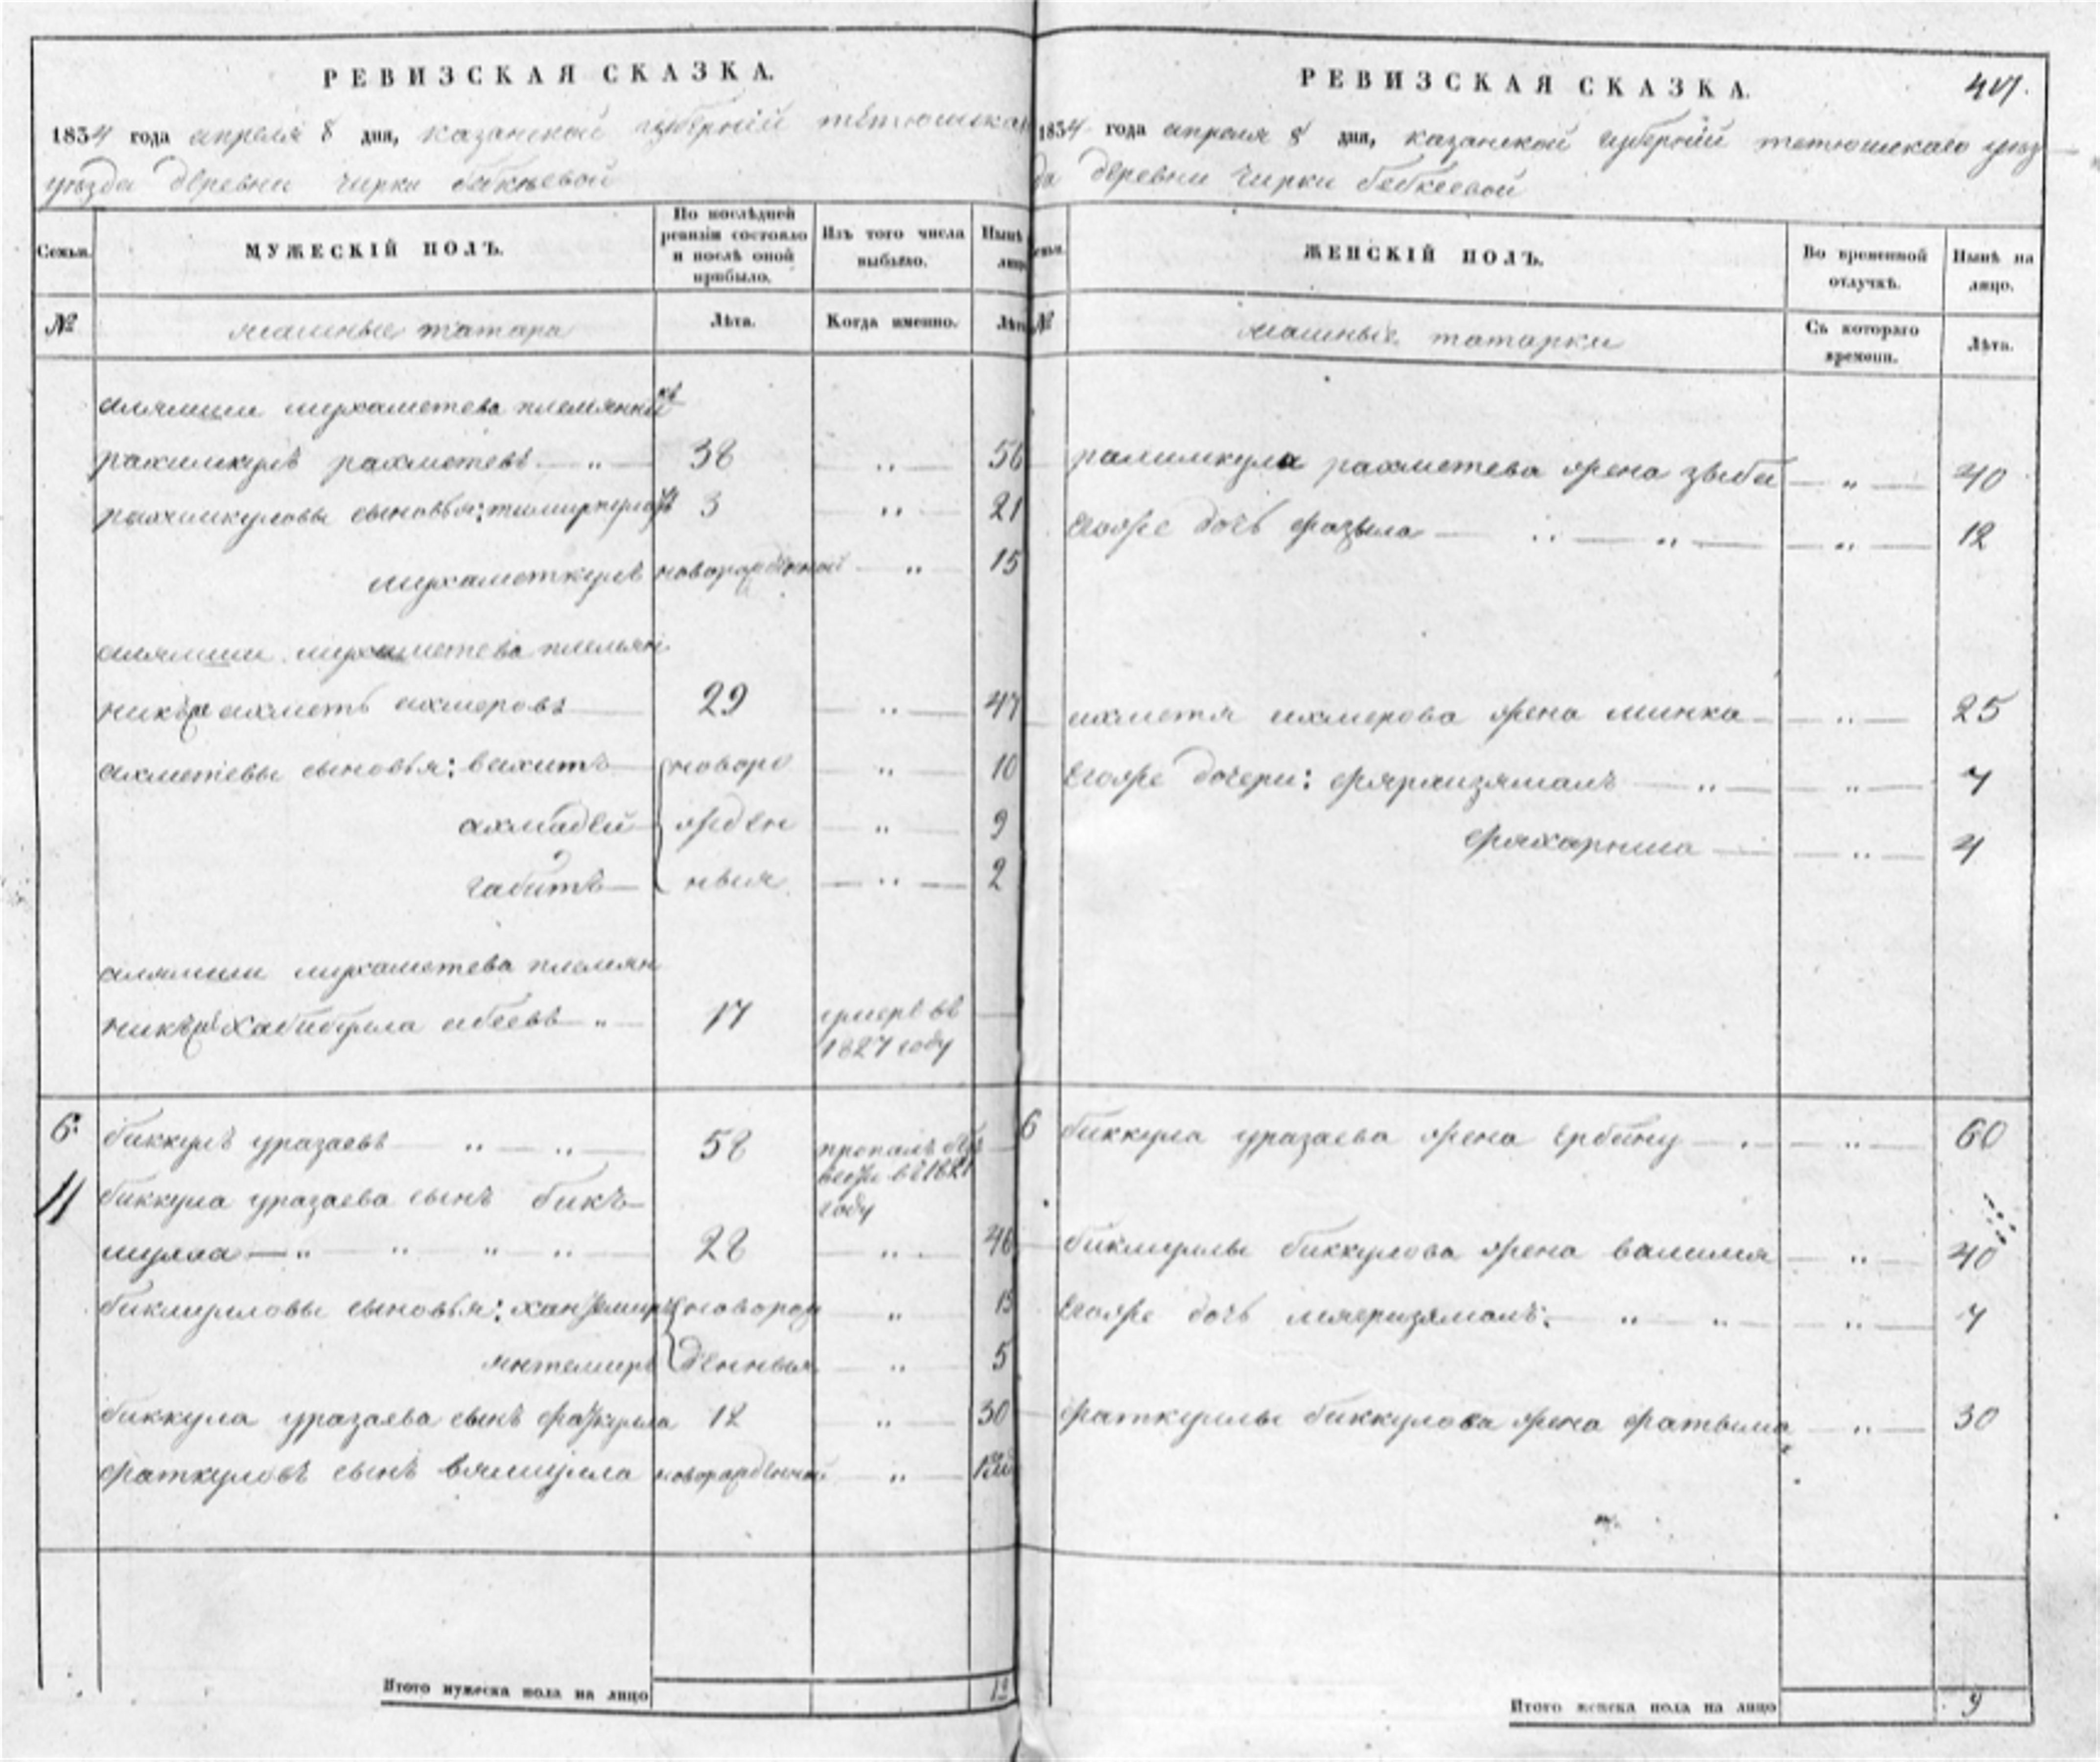 РЕВИЗСКАЯ СКАЗКА.
1834 года апреля 8 дня, казанской губернии тетюшскаго
уезда деревни чирки бебкѣевой
Семьи.
МУЖЕСКІЙ ПОЛЪ.
По послѣдней ревизіи состояло и послѣ оной прибыло.
Изъ того числа выбыло.
Нынѣ на лицо
№
ясашные татара
Лѣта.
Когда именно.
Лѣта
мухаметева племянникъ
рахимкулъ рахметевъ 38 56
рахимкуловы сыновья: 3 21
мухаметкулъ новорожденной 15
мухаметева племян
никъ ахметъ ахмеровъ 29 47
ахметевы сыновья: вахитъ новоро 10
ахмадей жден 9
габитъ ныя 2
мухаметева племян
никъ хабибулла абеевъ 17 умеръ въ
1827 году
6. биккулъ уразаевъ 58 пропалъ безъ
вести въ 1821
году
11 биккула уразаева сынъ бикъ
мулла 28 46
бикмулловы сыновья: новорож 15
янтемиръ денныя 5
биккула уразаева сынъ 12 30
фаткуловъ сынъ вялиулла новорожденной
Итого мужеска пола на лицо 12
РЕВИЗСКАЯ СКАЗКА.
417.
1834 года апреля 8 дня, казанской губернии тетюшскаго уез
да деревни чирки бебкеевой
Семьи.
ЖЕНСКІЙ ПОЛЪ.
Во временной отлучкѣ.
Нынѣ на лицо.
№
ясашные татарки
Съ котораго времени.
Лѣта.
рахимкула рахметева жена зюба 40
егожъ дочь фазыла 12
ахметя ахмерова жена минка 25
егожъ дочери: 7
4
6 биккула уразаева жена 60
бикмуллы биккулова жена валимя 40
егожъ дочь 7
фаткуллы биккулова жена фатыма 30
Итого женска пола на лицо 9